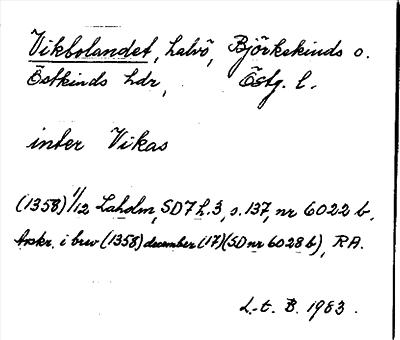 Vikbolandet, halvö, Björkekinds o.
Östkinds hdr, Östg. l.
inter Vikas
(1358) 1/12 Laholm, SD7 h.3, s.137, nr 6022 b,
Avskr. i brev (1358) december (17) (SD nr 6028 b), RA.
L-t. B. 1983.